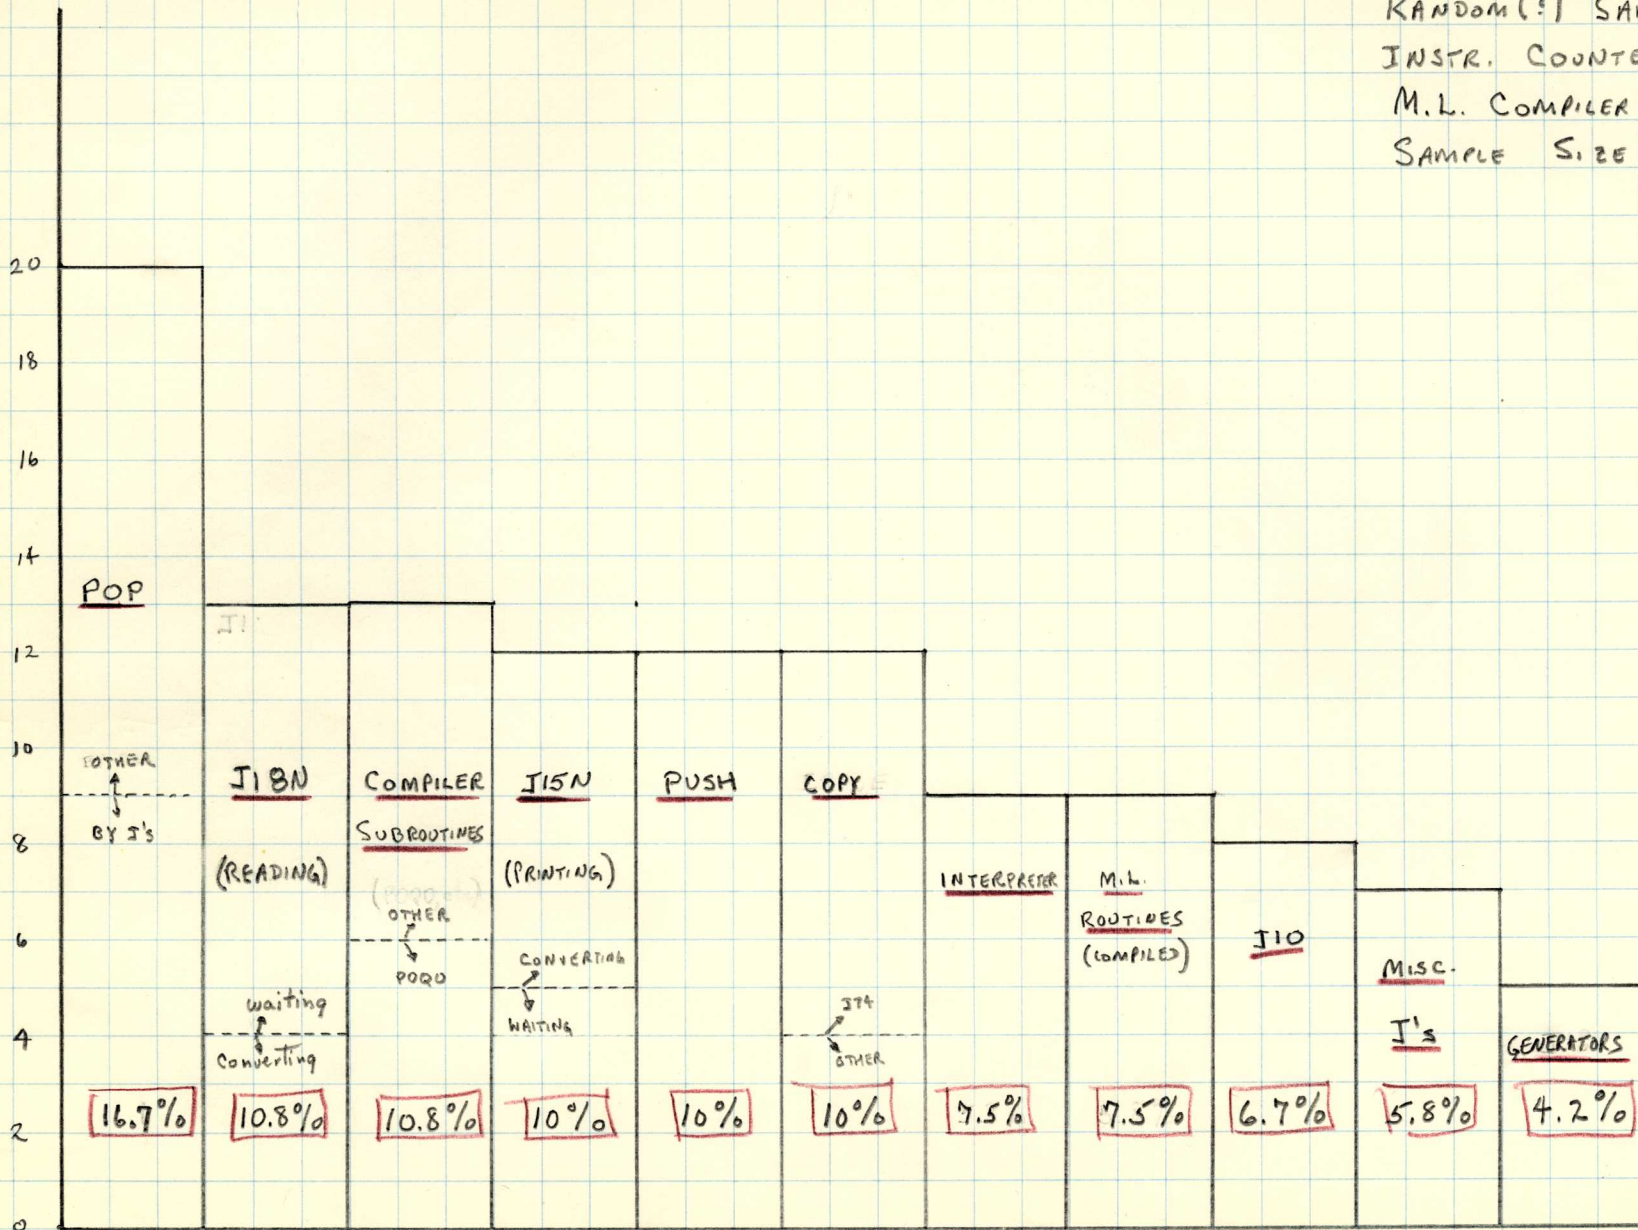 RANDOM(?) SA
INSTR. COUNTE
M.L. COMPILER
SAMPLE SIZE
20
18
16
14
12
10
8
6
4
2
0
POP
OTHER
BY J'S
16.7%
J1
J18N
(READING)
waiting
Converting
10.8%
COMPILER
SUBROUTINES
OTHER
POQO
10.8%
J15N
(PRINTING)
CONVERTING
WAITING
10%
PUSH
10%
COPY
J74
OTHER
10%
INTERPRETER
7.5%
M.L.
ROUTINES
(COMPILED)
7.5%
J10
6.7%
MISC.
J's
5.8%
GENERATORS
4.2%